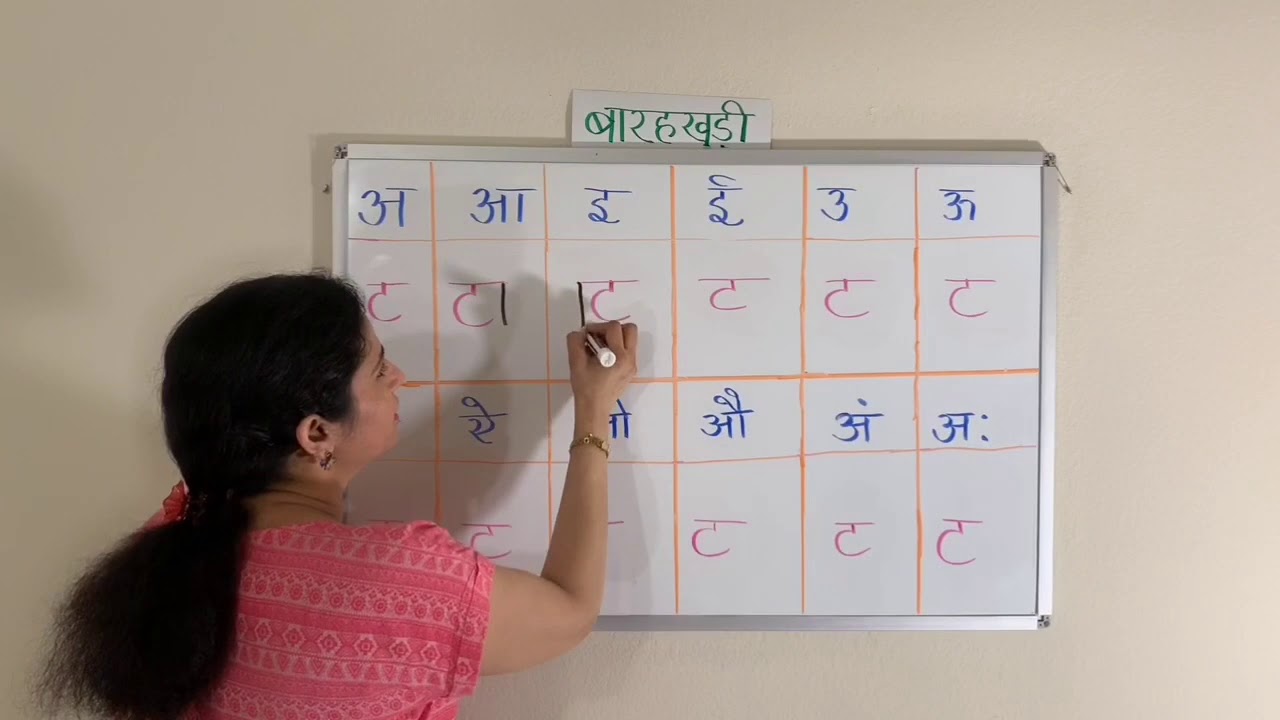 बारहखड़ी
अ आ इ ई उ ऊ
ट टा ट ट ट ट
ऐ औ अं अः
ट ट ट ट